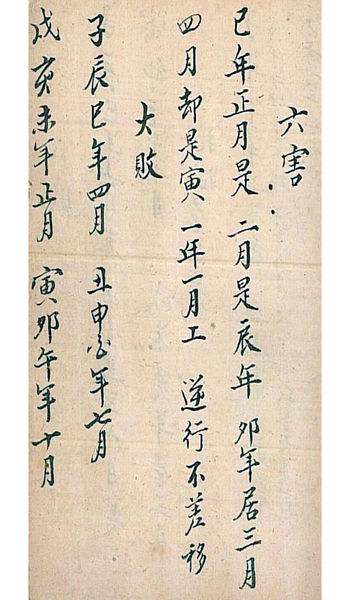 六害
巳年正月是 二月是辰年 卯年居三月
四月却是寅 一年一月工 逆行不差移
大敗
子辰巳年四月 丑申酉年七月
戌亥未年正月 寅卯午年十月